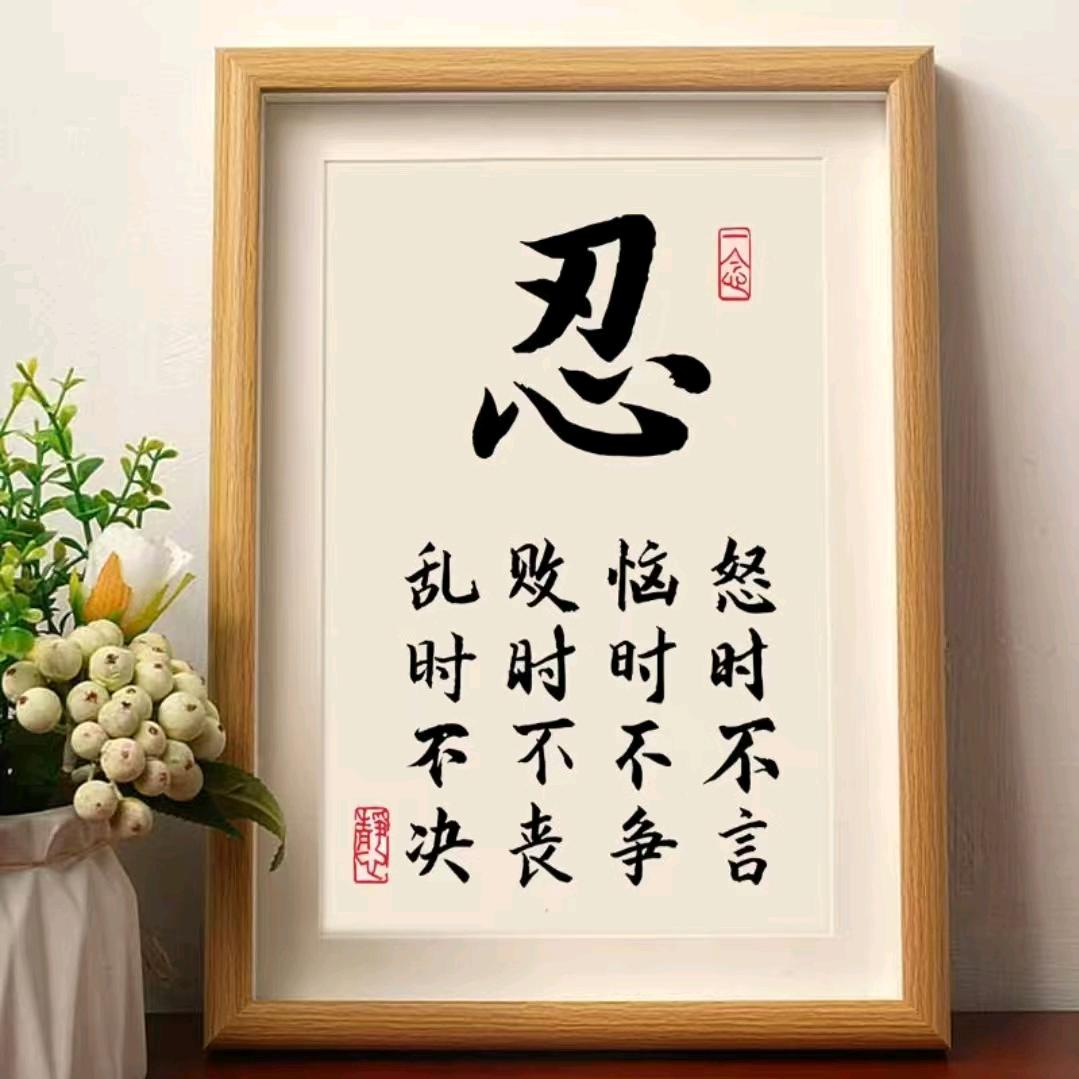 忍
一念
怒时不言
恼时不争
败时不丧
乱时不决
靜心